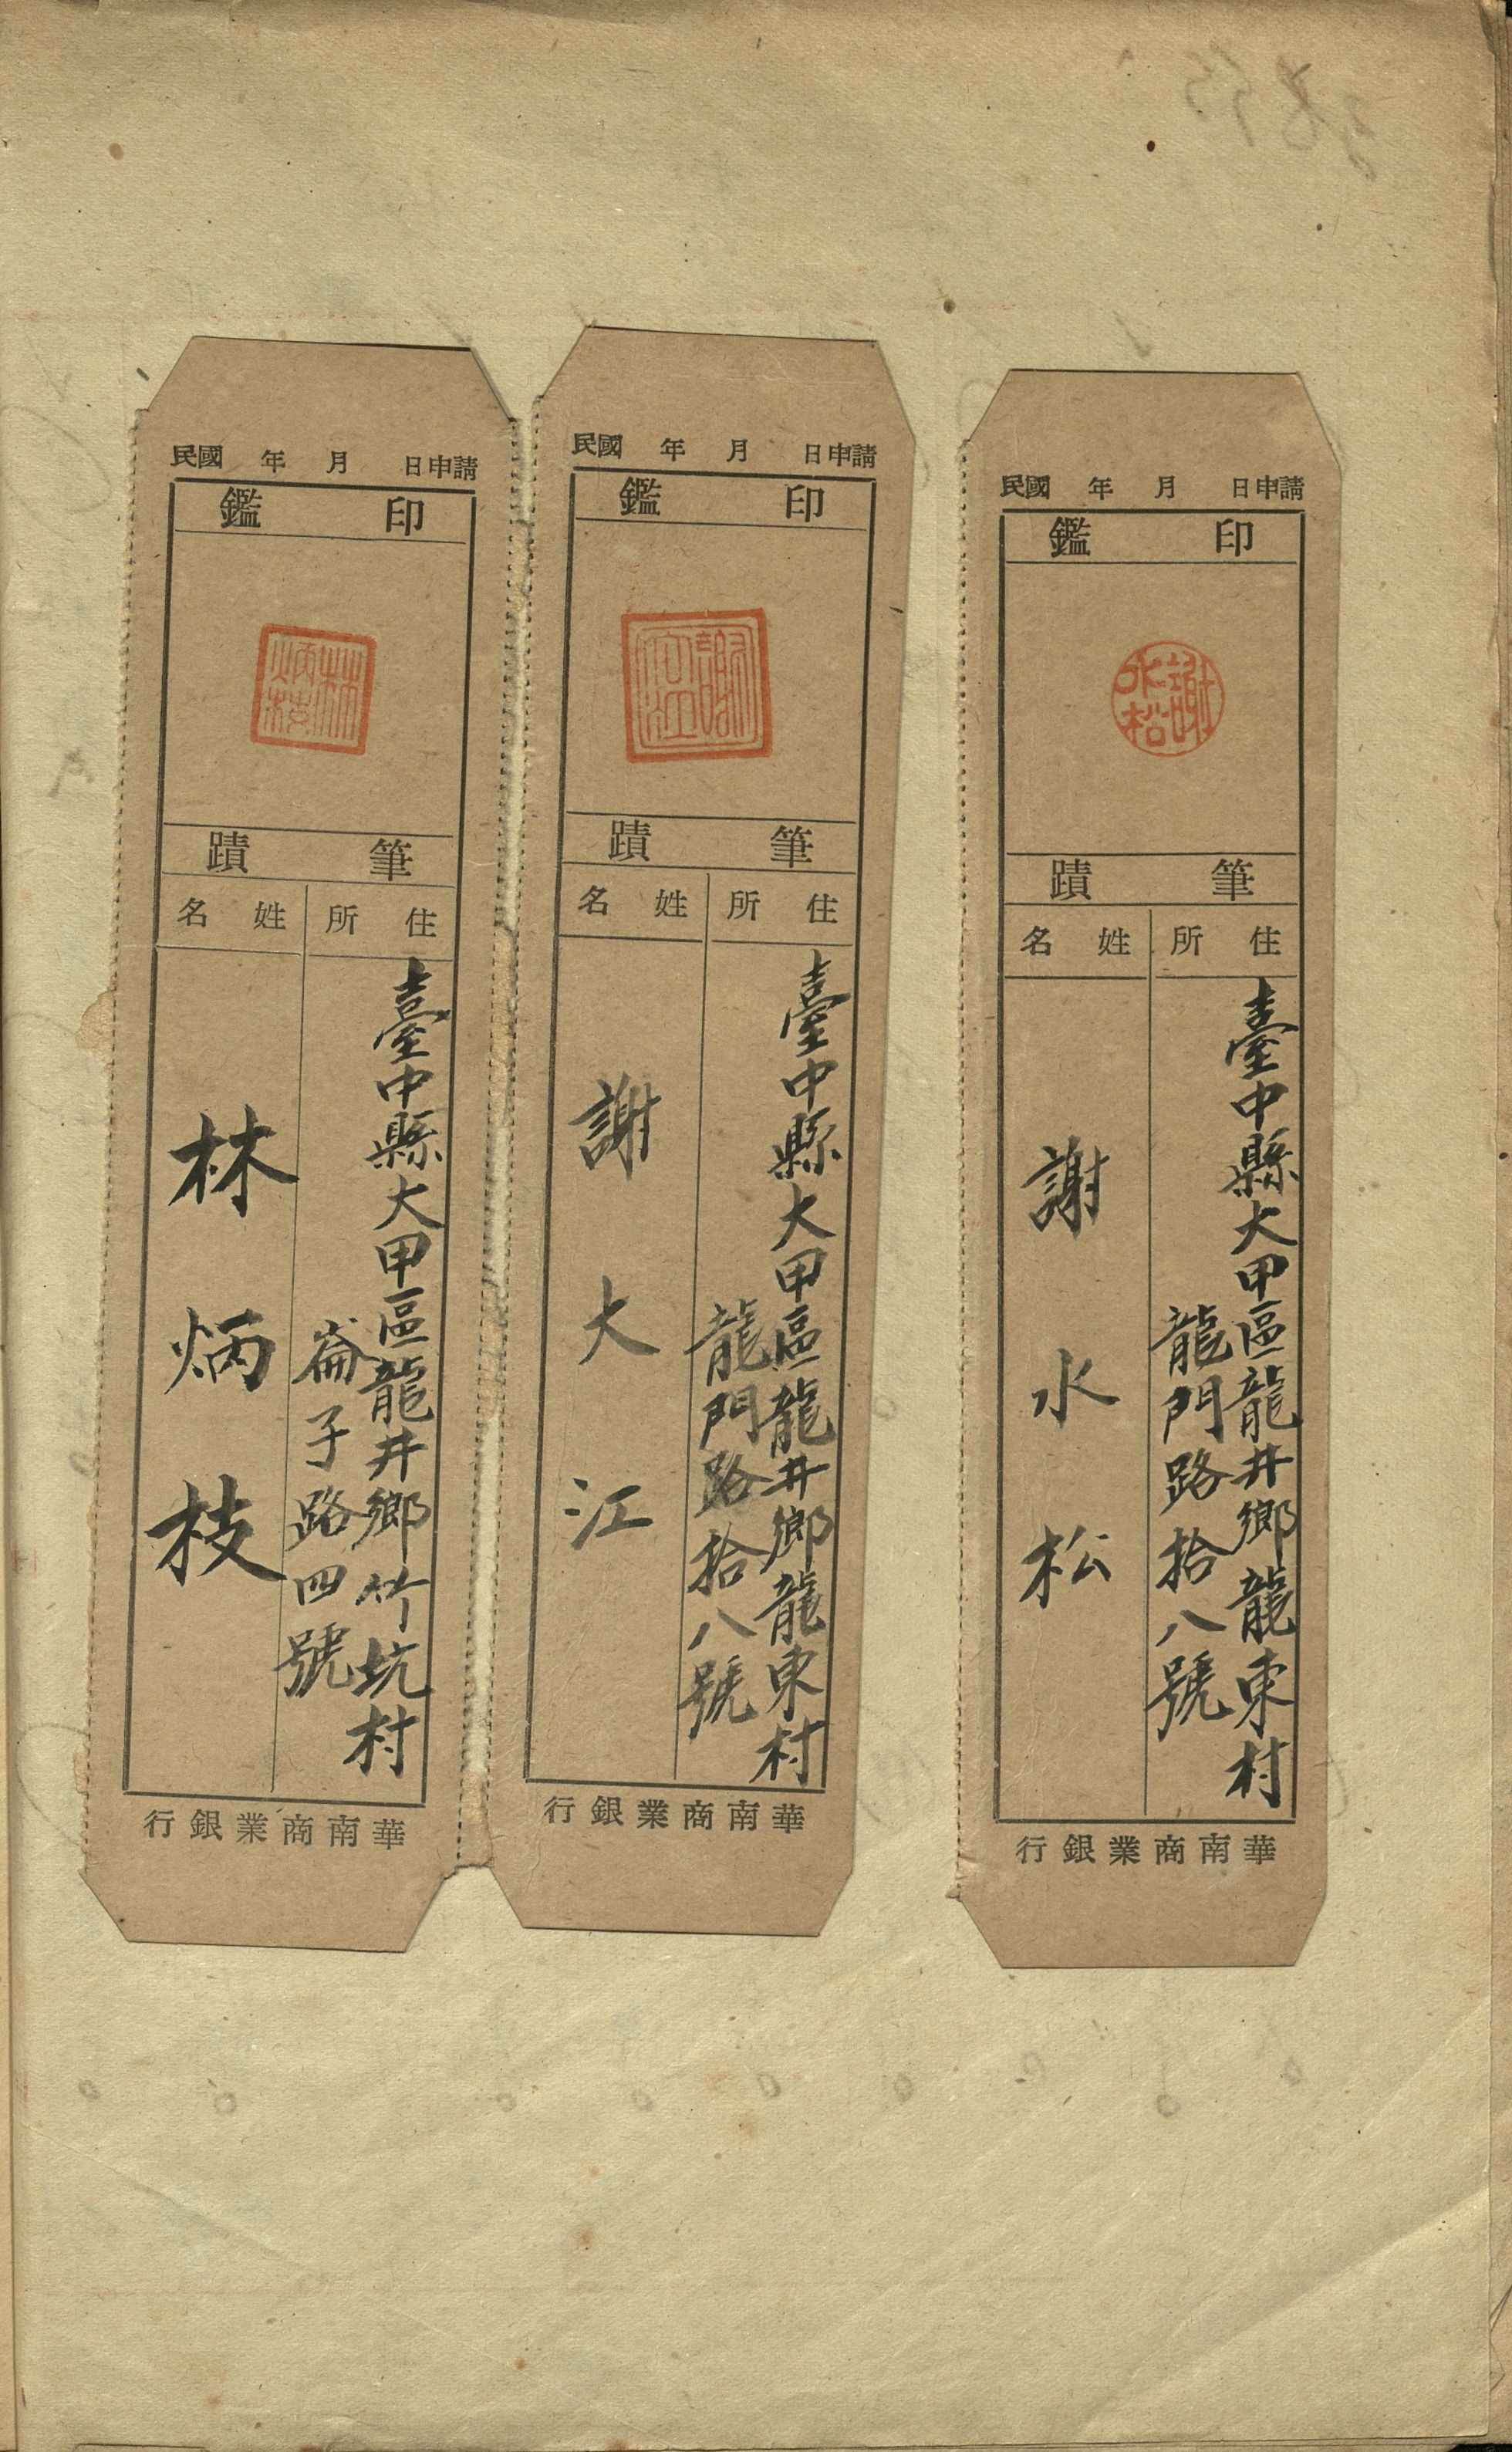 民國 年 月 日申請
印鑑
謝水松
筆蹟
住所 姓名
臺中縣大甲區龍井鄉龍東村
龍門路拾八號
謝水松
華南商業銀行
民國 年 月 日申請
印鑑
筆蹟
住所 姓名
臺中縣大甲區龍井鄉龍東村
龍門路拾八號
謝大江
華南商業銀行
民國 年 月 日申請
印鑑
林炳枝
筆蹟
住所 姓名
臺中縣大甲區龍井鄉竹坑村
崙子路四號
林炳枝
華南商業銀行